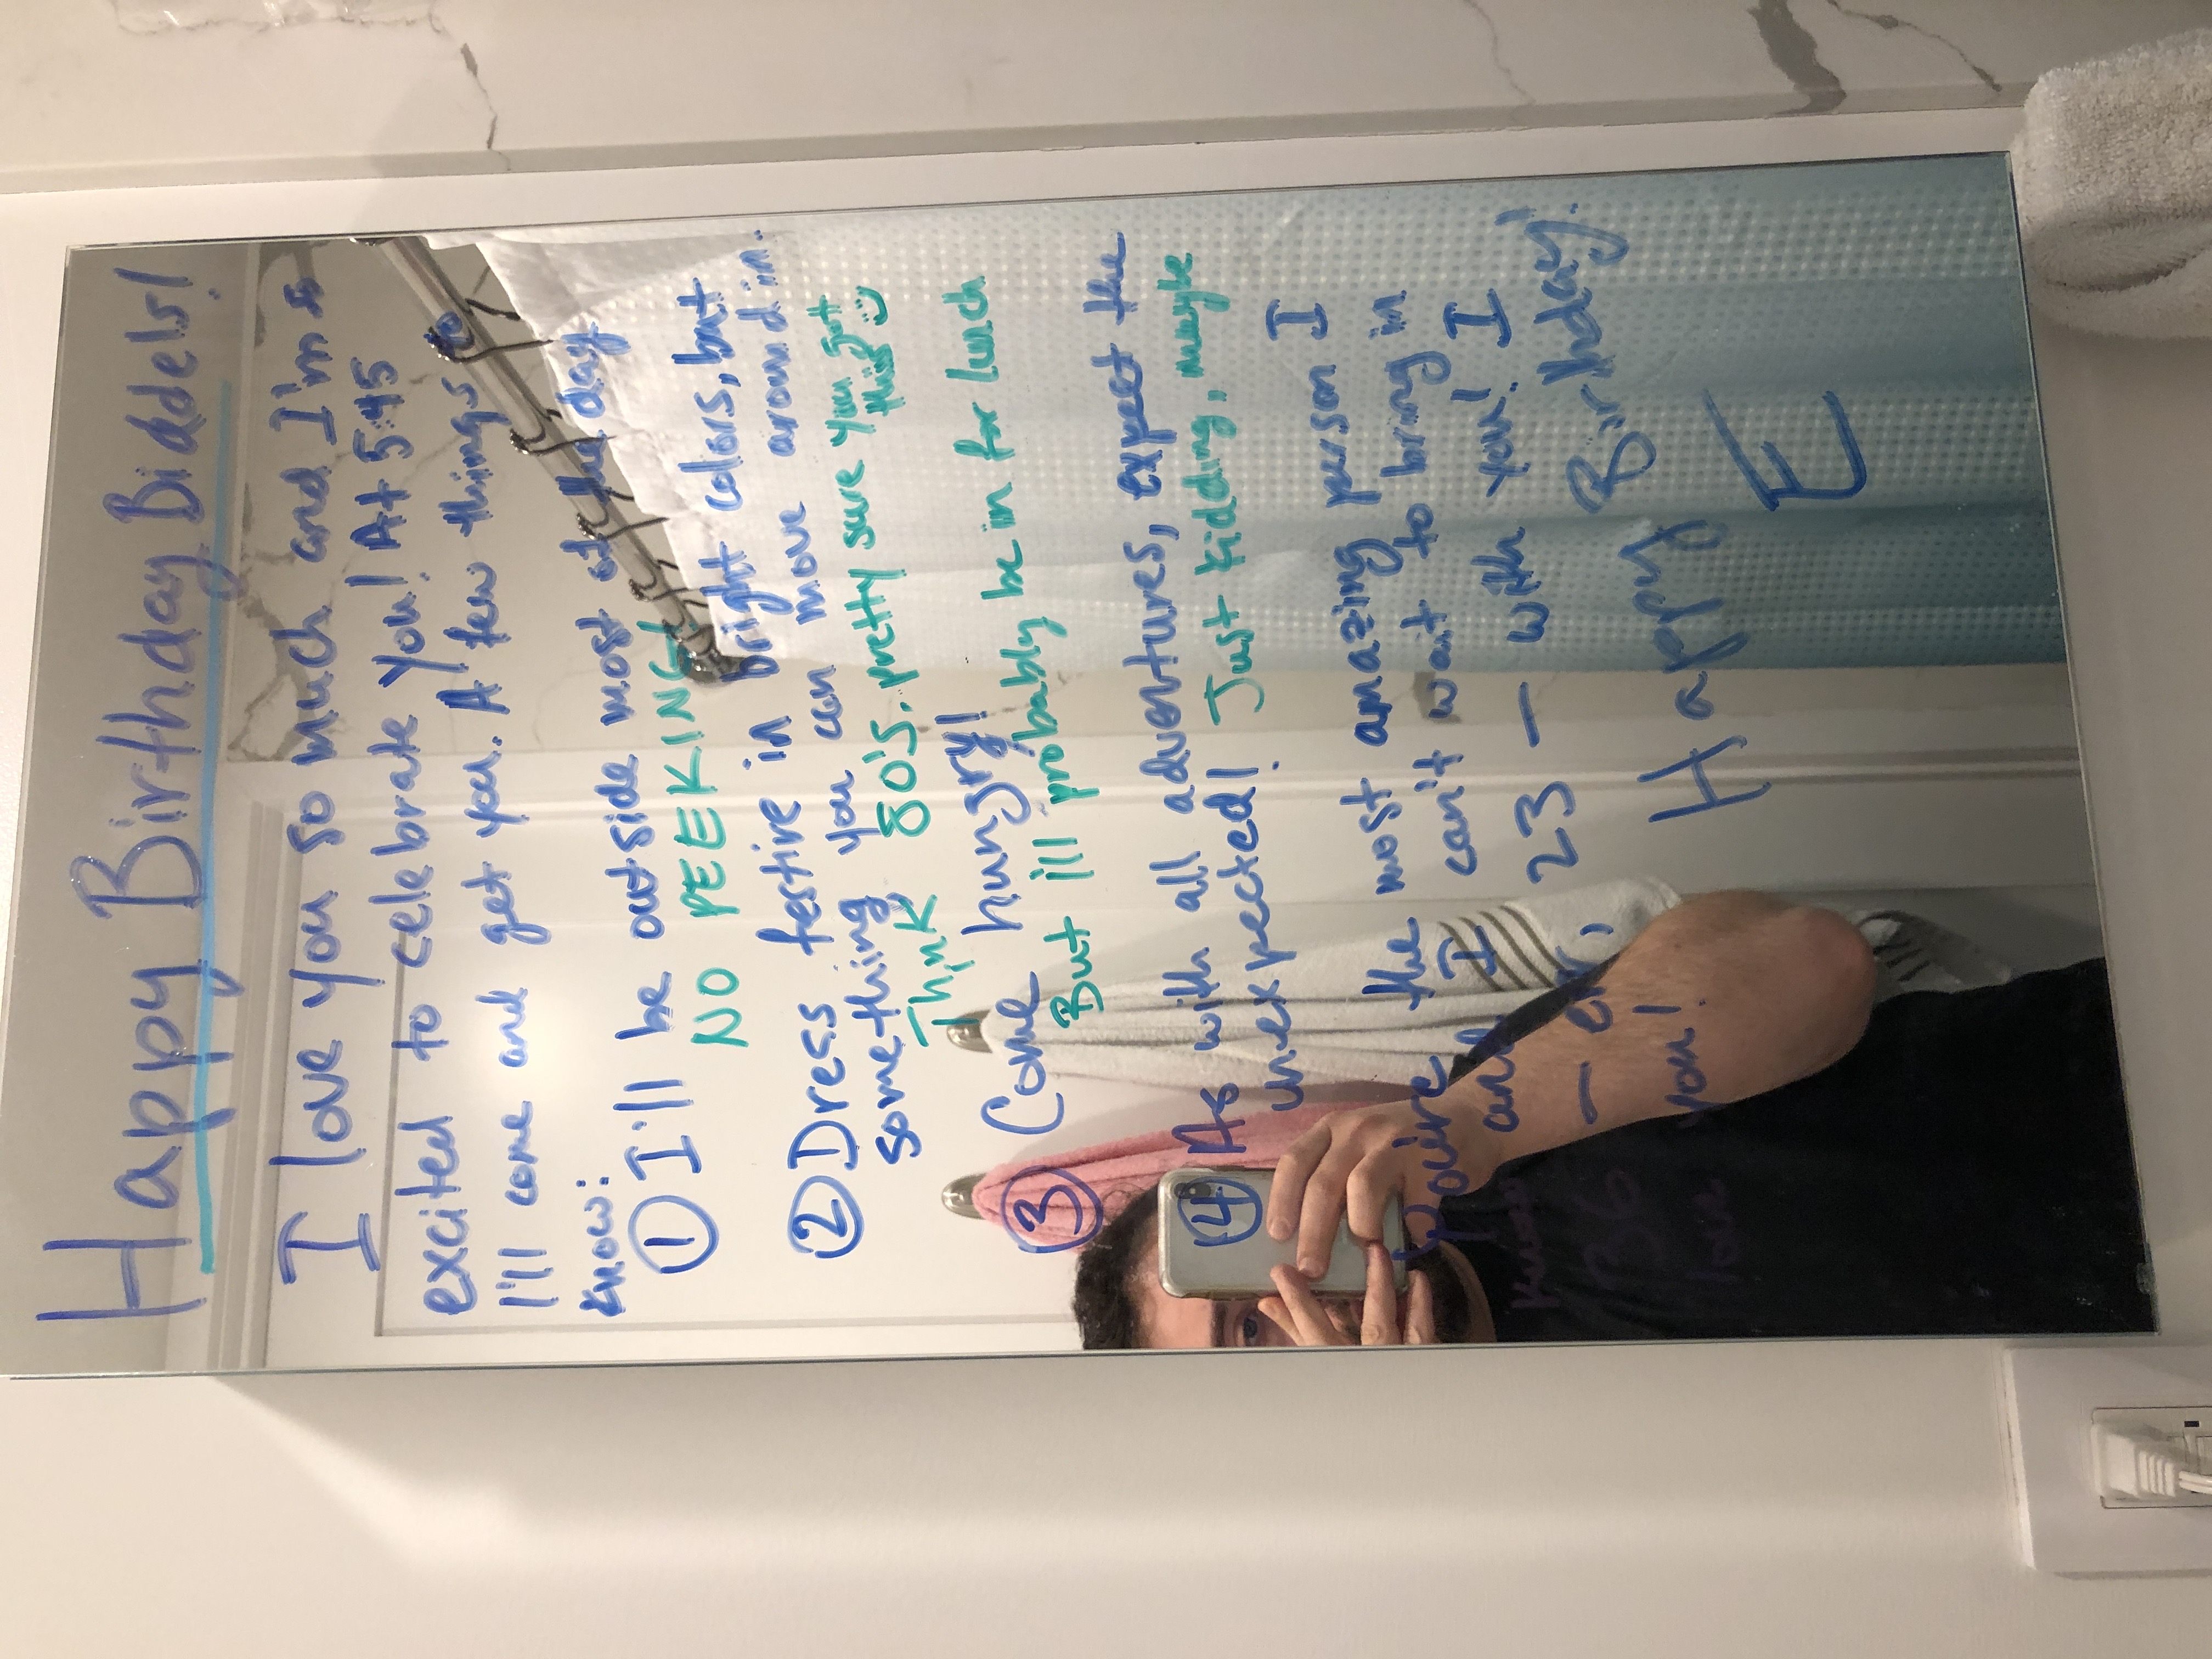 Happy Birthday Biddels!
I love you so much and I'm so
excited to celebrate you! At 5:45
I'll come and get you. A few things to
know:
① I'll be outside most of the day
NO PEEKING!
② Dress festive in bright colors, but
something you can move around in.
Think 80's. pretty sure you got
this :)
③ Come hungry!
But i'll probably be in for lunch
④ As with all adventures, expect the
unexpected! Just kidding, maybe
You're the most amazing person I
know and I can't wait to bring in
36 — err, 23 — with you! I
love you!
Happy Birthday!
E